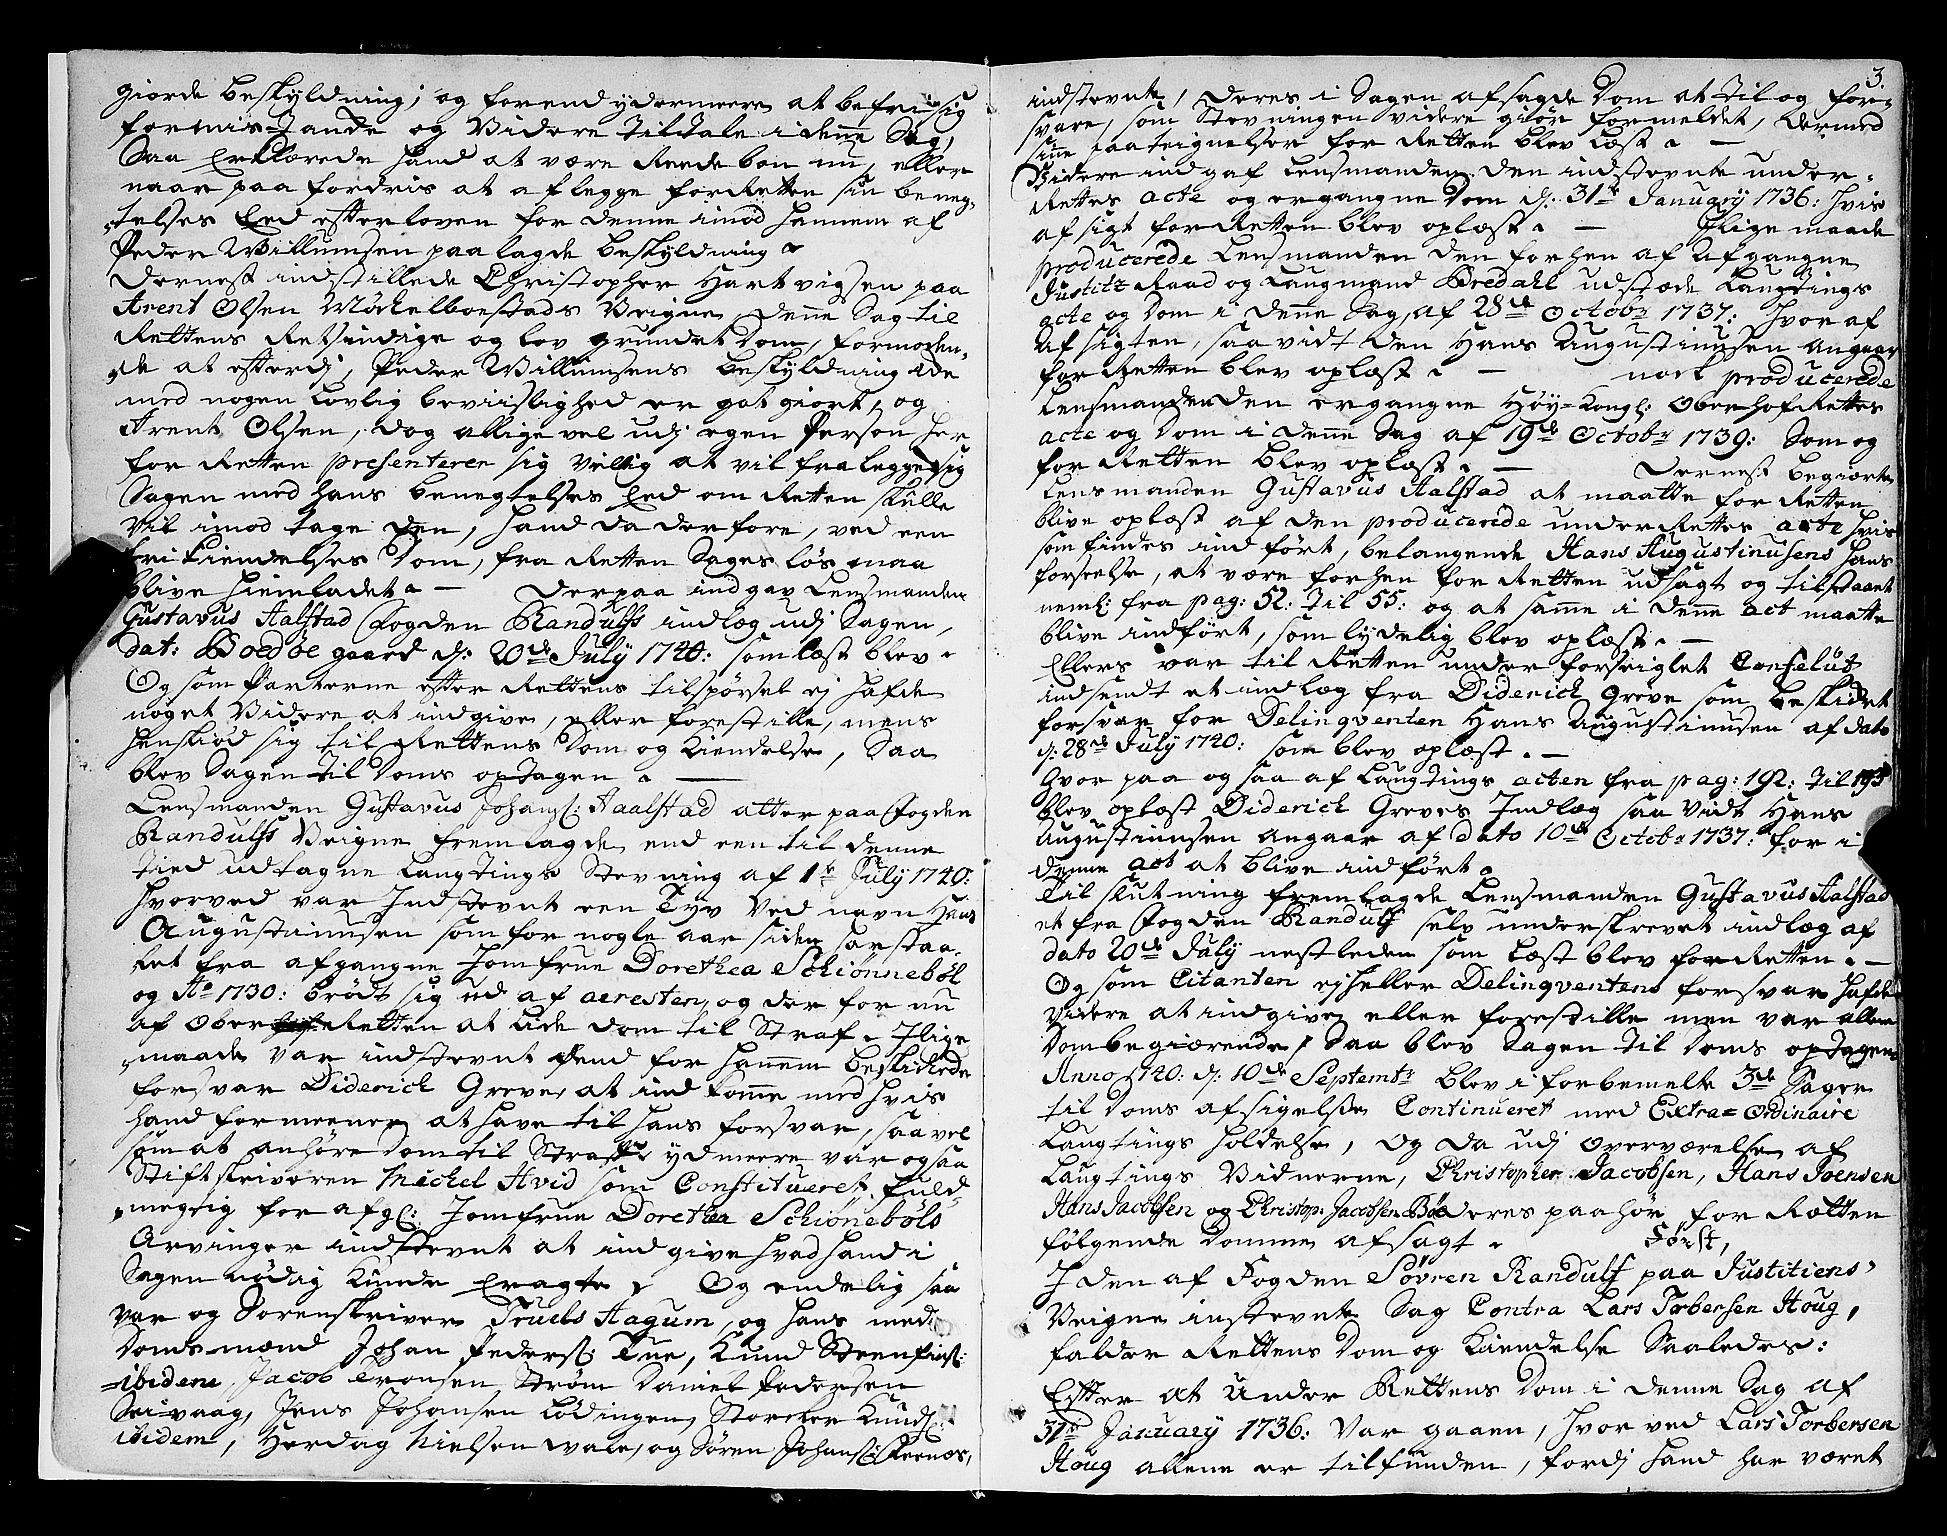 giorde beskyldning; og forend ydermeere at befrie sig
for mis-Tancke og Videre tiltale i denne Sag,
Saa Erklærede hand at være Reedebon nu, eller
naar paa fordris at aflegge for Retten sin beneg-
telses Eed efter loven for denne imod hannem af
Peder Willumsen paalagde beskyldning.
Dernest indstillede Christopher Hartvigsen paa
Arent Olsen Mickelboestads Veigne denne Sag til
Rettens Retsindige og lov grundet Dom, formoden-
de at efterdj Peder Willumsens beskyldning icke
med nogen Lovlig beviislighed er got giort, og
Arent Olsen, dog allige vel udj egen Person her
for Retten presenterer sig villig at vil fralegge sig
Sagen med hans benegtelses Eed om Retten skulle
vil imod tage den, hand da derfore, ved een
frikiendelses Dom, fra Retten Sages løs maa
blive hiemladet. — Derpaa indgav Lensmanden
Gustavus Aalstad Fogden Randulfs indlæg udj Sagen,
dat: Boedøe gaard d: 20de July 1740: som læst blev.
Og som Parterne efter Rettens tilspørsel ej hafde
noget Videre at indgive, eller forestille, mens
henskiød sig til Rettens Dom og Kiendelse, Saa
blev Sagen til Doms optagen. —
Lensmanden Gustavus Johans: Aalstad atter paa Fogden
Randulfs Veigne fremlagde end een til denne
tied udtagne Laugtings Stevning af 1te July 1740:
hvorved var Indstevnt een Tyv ved navn Hans
Augustinusen som for nogle aar siden har staa-
let fra afgangne Jomfrue Dorethea Schiønnebøl
og Ao 1730: brødt sig ud af aresten, og der for nu
af Ober Retten at lide dom til Straf. Jlige
maade var indstevnt dend for hannem beskickede
forsvar Diderich Greve, at ind komme med hvis
hand formeener at have til hans forsvar, saa vel
som at anhøre dom til Straf. ydmeere var ogsaa
Stiftskriveren Michel Hvid som Constitueret fuld-
megtig for afg: Jomfrue Dorethea Schiønebøls
Arvinger indstevnt at indgive hvad hand i
Sagen nødig kunde Eragte. Og endelig saa
var og Sorenskriver Truels Hagum, og hans med
Domsmænd Johan Peders: Tue, Knud Steenfins:
ibidem, Jacob Tronsen Strøm Daniel Pedersen
Seivaag, Jens Johansen Lødingen, Storcker Knuds:
ibidem, Herdag Nielsen wale, og Søren Johans: Tternæs,
3.
indstevnte, deres i Sagen afsagde Dom at til og for-
svare, som Stevningen videre giør formeldet, Dermed
sine paateignelser for Retten blev læst. —
Videre indgaf Lensmanden den indstevnte under-
Rettes acte og ergangne Dom d: 31te January 1736: hvis
afsigt for Retten blev oplæst. — Jlige maade
producerede Lensmanden den forhen af afgangne
Justitz Raad og Laugmand Bredahl udstæde Laugtings
acte og Dom i denne Sag, af 28de Octobr 1737: hvor af
afsigten, saavidt den Hans Augustinusen angaar
for Retten blev oplæst. — nock producerede
Lensmanden den ergangne Høy-Kongl: Oberhof Rettes
acte og Dom i denne Sag af 19de Octobr 1739: Som og
for Retten blev oplæst. — Dernest begiærte
Lensmanden Gustavus Aalstad at maatte for Retten
blive oplæst af den producerede under Rettes acte hvis
som findes ind ført, belangende Hans Augustinusens hans
forseelse, at være forhen for Retten udsagt og tilstaaet
neml: fra pag: 52: til 55: og at samme i denne act maatte
blive indført, som lydelig blev oplæst. —
Ellers var til Retten under forseiglet Conselut
indsendt et indlæg fra Diderich Greve som beskicket
forsvar for Delinqventen Hans Augustinusen af dato
d: 28de July 1740: som blev oplæst. —
Hvor paa og saa af Laugtings acten fra pag: 192: til 195
blev oplæst Diderich Greves Indlæg saa vidt Hans
Augustinusen angaar af dato 10de Octobr 1737: for i
denne act at blive indført.
Til slutning fremlagde Lensmanden Gustavus Aalstad
et fra Fogden Randulf selv underskrevet indlæg af
dato 20de July nestleden som læst blev for Retten. —
Og som Citanten ej heller Delinqventens forsvar hafde
videre at indgive eller forestille men var allene
Dom begiærende, Saa blev Sagen til Doms optagen
Anno 1740: d: 10de Septembr blev i forbemelte 3de Sager
til Doms afsigelse Continueret med Extra-Ordinaire
Laugtings holdelse, Og da udj overværelse af
Laugtings Vidnerne, Christopher Jacobsen, Hans Joensen
Hans Jacobsen og Christoph: Jacobsen Bøe deres paahør for Retten
følgende Domme afsagt. Først,
I den af Fogden Søvren Randulf paa Justitiens
Veigne instevnte Sag Contra Lars Torbersen Houg,
falder Rettens Dom og Kiendelse Saaledes:
Efter at Under Rettens Dom i denne Sag af
31te January 1736: var gaaen, hvor ved Lars Torbersen
Houg allene er tilfunden, fordj hand har været